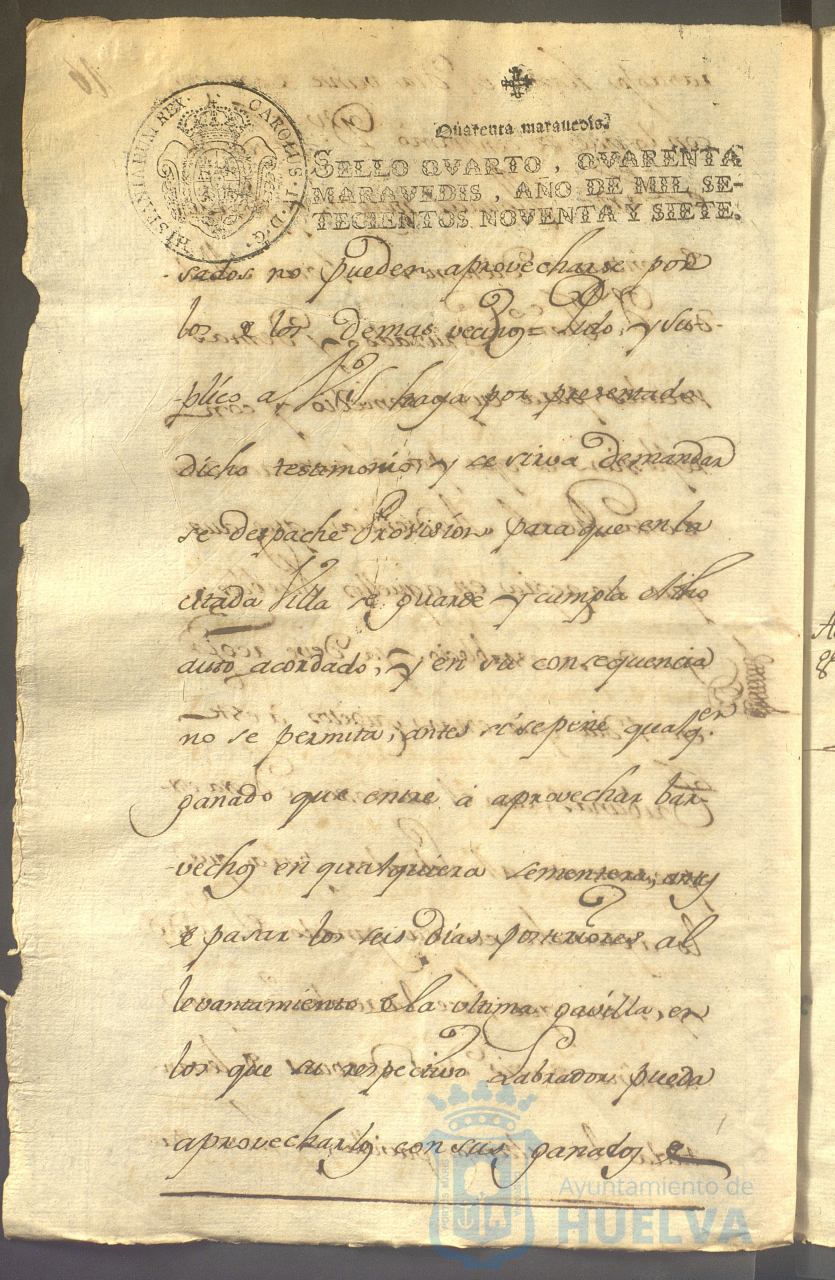 HISPANIARUM REX. CAROLUS. IV. D. G.
Quarenta maravedis.
SELLO QVARTO, QVARENTA
MARAVEDIS, AÑO DE MIL SE-
TECIENTOS NOVENTA Y SIETE.
-sados no pueden aprovecharse por
los de los demas vecinos= Pido, y su-
-plico a haga por presentado
dicho testimonio, y se sirva demandar
se despache Provision para que en la
citada Villa se guarde y cumpla dho
auto acordado; y en su consequencia
no se permita, antes si se pene qualqer
ganado que entre á aprovechar bar-
-vechos en qualquiera sementera, antes
de pasar los seis dias posteriores al
levantamiento de la ultima gavilla, en
los que su respectivo Labrador pueda
aprovecharlos con sus ganados
Ayuntamiento de
HUELVA